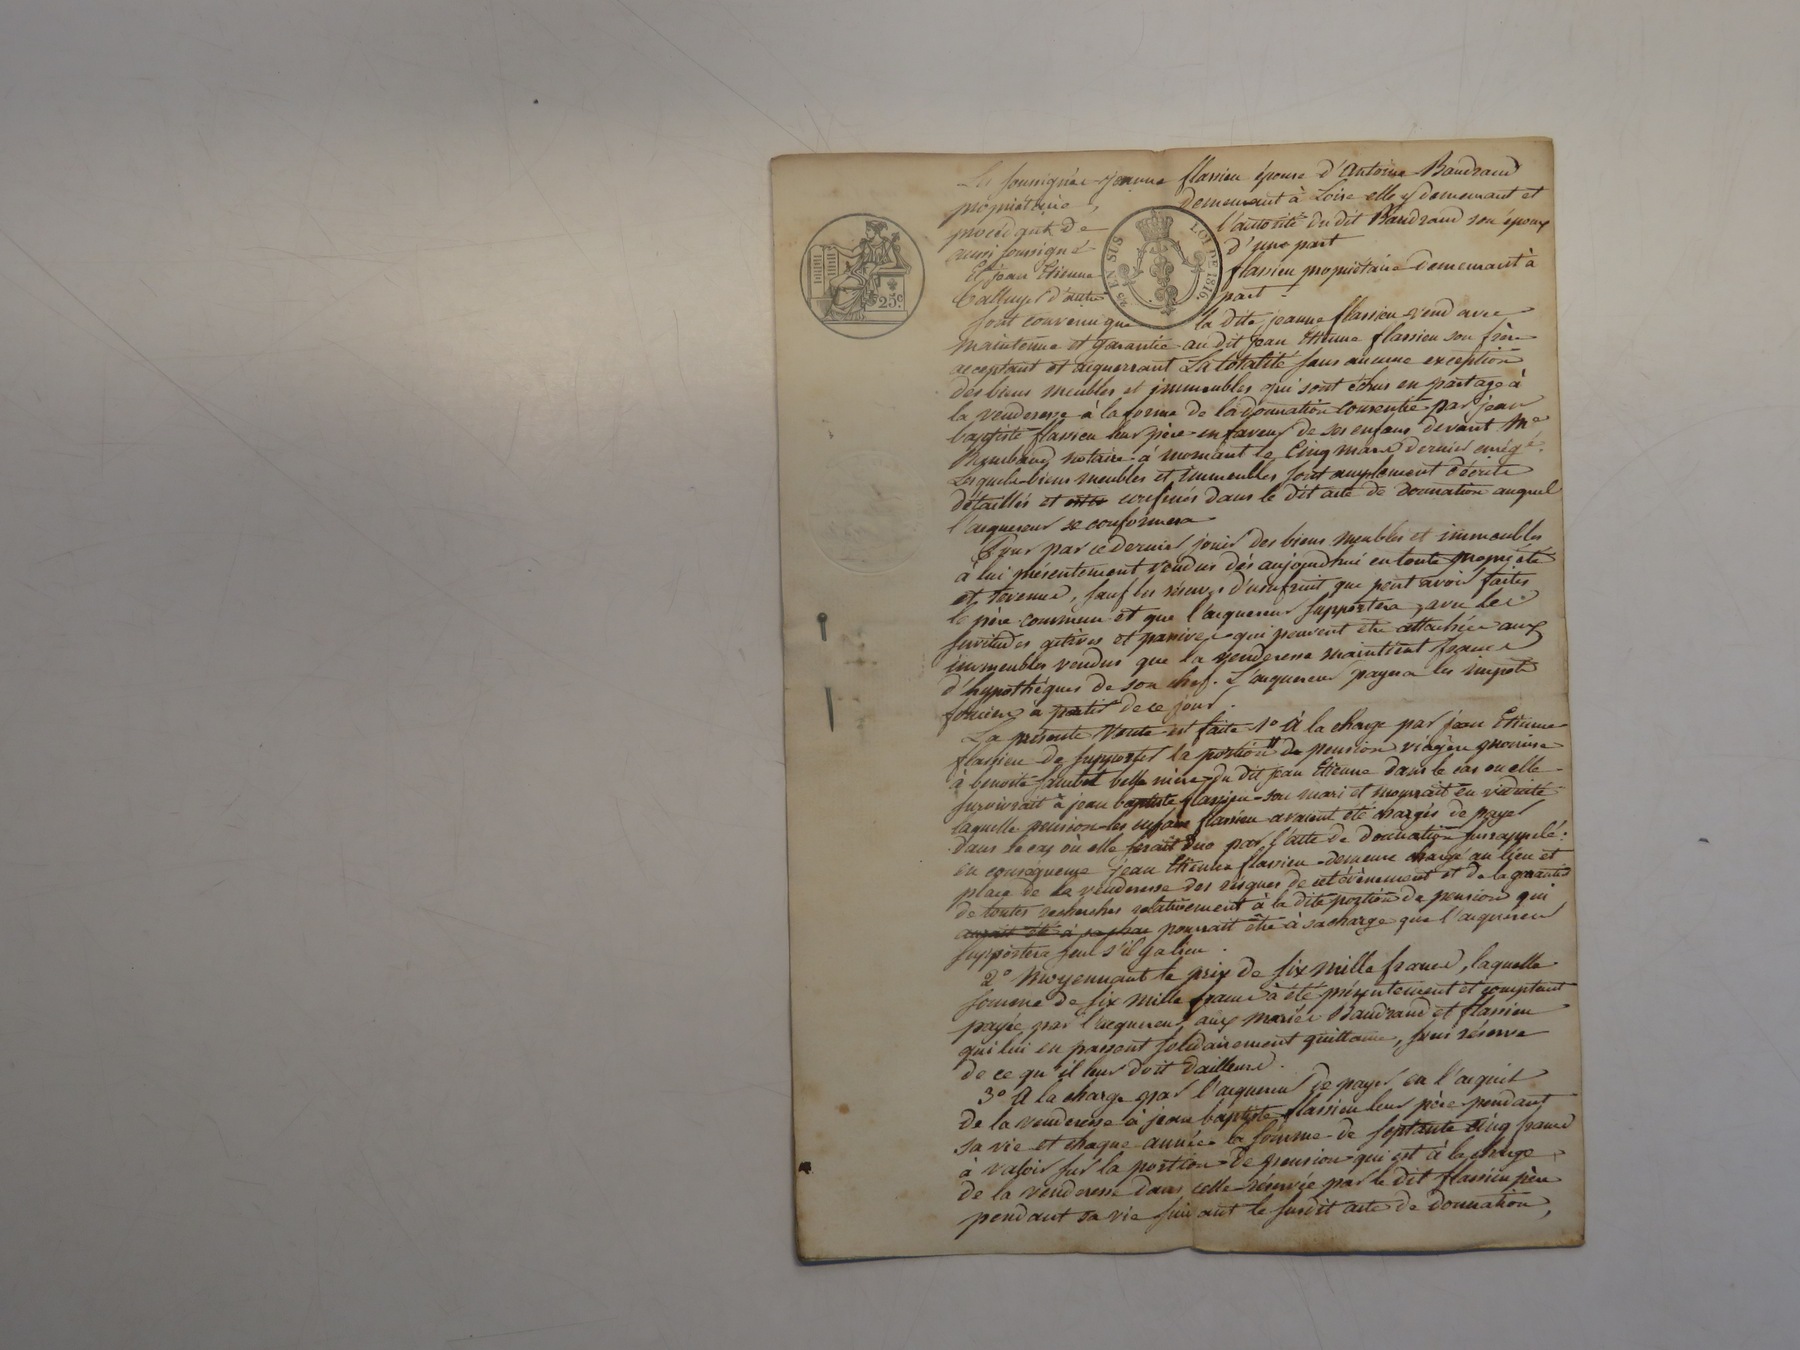 Les soussignés jeanne flassieu épouse d'Antoine Baudrand
propriétaire, demeurant à Loire elle y demeurant et
procédant de l'autorité du dit Baudrand son époux
aussi soussigné d'une part
Et jean Etienne flassieu propriétaire demeurant à
d'autre part.
sont convenu que la dite jeanne flassieu vend avec
maintenue et garantie au dit jean Etienne flassieu son frère
acceptant et acquerrant La totalité sans aucune exception
des biens meubles et immeubles qui sont échus en partage à
la venderesse à la forme de la donnation consentie par jean
baptiste flassieu leur père en faveur de ses enfans devant Me
notaire à mornant le Cinq mars dernier enrégé.
Lesquels biens meubles et immeubles sont amplement décrits
détaillés et confinés dans le dit acte de donnation auquel
l'acquereur se conformera
Pour par ce dernier jouir des biens meubles et immeubles
à lui présentement vendus dès aujourdhui en toute propriété
et revenus, sauf les réserves d'usufruit que peut avoir faites
le père commun et que l'acquereur supportera avec les
servitudes actives et passives qui peuvent etre attachées aux
immeubles vendus que la venderesse maintient francs
d'hypothèques de son chef. L'acquereur payera les impots
fonciers a partir de ce jour.
La présente Vente est faite 1° à la charge par jean Etienne
flassieu de supporter la portion de pension viagère promise
à benoite belle mère du dit jean Etienne dans le cas ou elle
survivrait à jean baptiste flassieu son mari et mourrait en viduité
laquelle pension les enfans flassieu avaient été chargés de payer
dans le cas où elle serait due par l'acte de donnation susrappelé.
en conséquence jean Etienne flassieu demeure chargé au lieu et
place de la venderesse des risques de cet évènement et de la garantie
de toutes recherches relativement à la dite portion de pension qui
aurait été à sa pourrait être à sa charge que l'acquereur
supportera seul s'il y a lieu.
2° Moyennant le prix de six mille francs, laquelle
somme de six mille francs a été présentement et comptant
payée par l'acquereur aux mariés Baudrand et flassieu
qui lui en passent solidairement quittance, sans réserve
de ce qu'il leur doit dailleurs.
3° A la charge par l'acquereur de payer en l'acquit
de la venderesse à jean baptiste flassieu leur père pendant
sa vie et chaque année la somme de septante cinq francs
à valoir sur la portion de pension qui est à la charge
de la venderesse dans celle réservée par le dit flassieu père
pendant sa vie suivant le susdit acte de donnation,
25c.
25 EN SUS
LOI DE 1816.